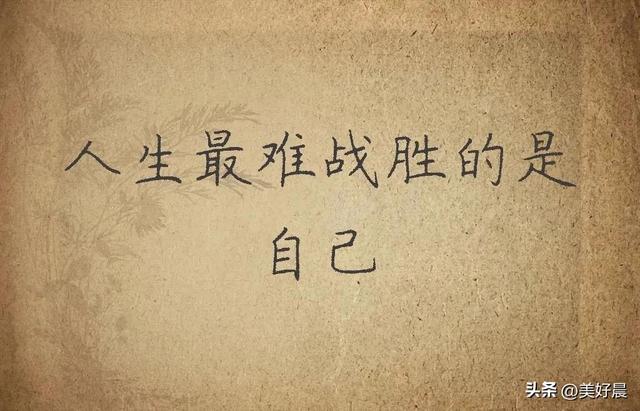 人生最难战胜的是
自己
头条 @美好晨